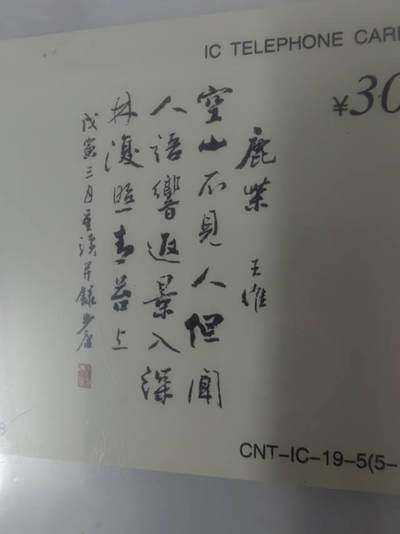 IC TELEPHONE CAR
¥30
鹿柴 王維
空山不見人但聞
人語響返景入深
林復照青苔上
戊寅三月
CNT-IC-19-5(5-